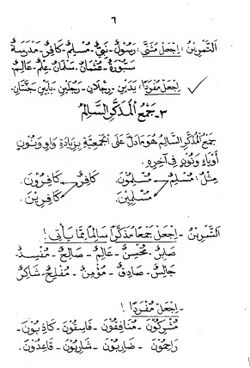 ٦
التَّمْرِيْنُ : اِجْعَلْ مُثَنًّى : رَسُوْلٌ - نَبِيٌّ - مُسْلِمٌ - كَافِرٌ - مَدْرَسَةٌ
سَبُّوْرَةٌ - عُثْمَانُ - سَلْمَانُ - عِلْمٌ - عَالِمٌ
اِجْعَلْ مُفْرَدًا : يَدَيْنِ - رِجْلَانِ - رَجُلَيْنِ - بَابَيْنِ - جَنَّتَانِ .
٣ - جَمْعُ الْمُذَكَّرِ السَّالِمُ
جَمْعُ الْمُذَكَّرِ السَّالِمُ هُوَ مَادَلَّ عَلَى الْجَمْعِيَّةِ بِزِيَادَةِ وَاوٍ وَنُوْنٍ
أَوْيَاءٍ وَنُوْنٍ فِى آخِرِهِ .
مِثْلُ : مُسْلِمٌ مُسْلِمُوْنَ كَافِرٌ كَافِرُوْنَ
مُسْلِمِيْنَ كَافِرِيْنَ
التَّمْرِيْنُ : اِجْعَلْ جَمْعًا مُذَكَّرًا سَالِمًا مِمَّا يَأْتِى !
صَابِرٌ - مُحْسِنٌ - عَالِمٌ - صَالِحٌ - مُفْسِدٌ -
جَالِسٌ - صَادِقٌ - مُؤْمِنٌ - مُفْلِحٌ - شَاكِرٌ
- اِجْعَلْ مُفْرَدًا !
مُشْرِكُوْنَ - مُنَافِقُوْنَ - فَاسِقُوْنَ - كَاذِبُوْنَ -
رَاحِمُوْنَ - ضَارِبُوْنَ - شَارِبُوْنَ - قَاعِدُوْنَ .